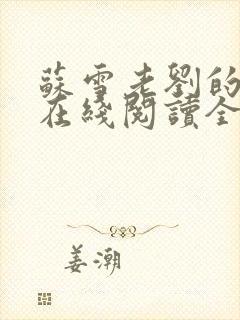 蘇雪老劉的
在綫閱讀全
姜潮